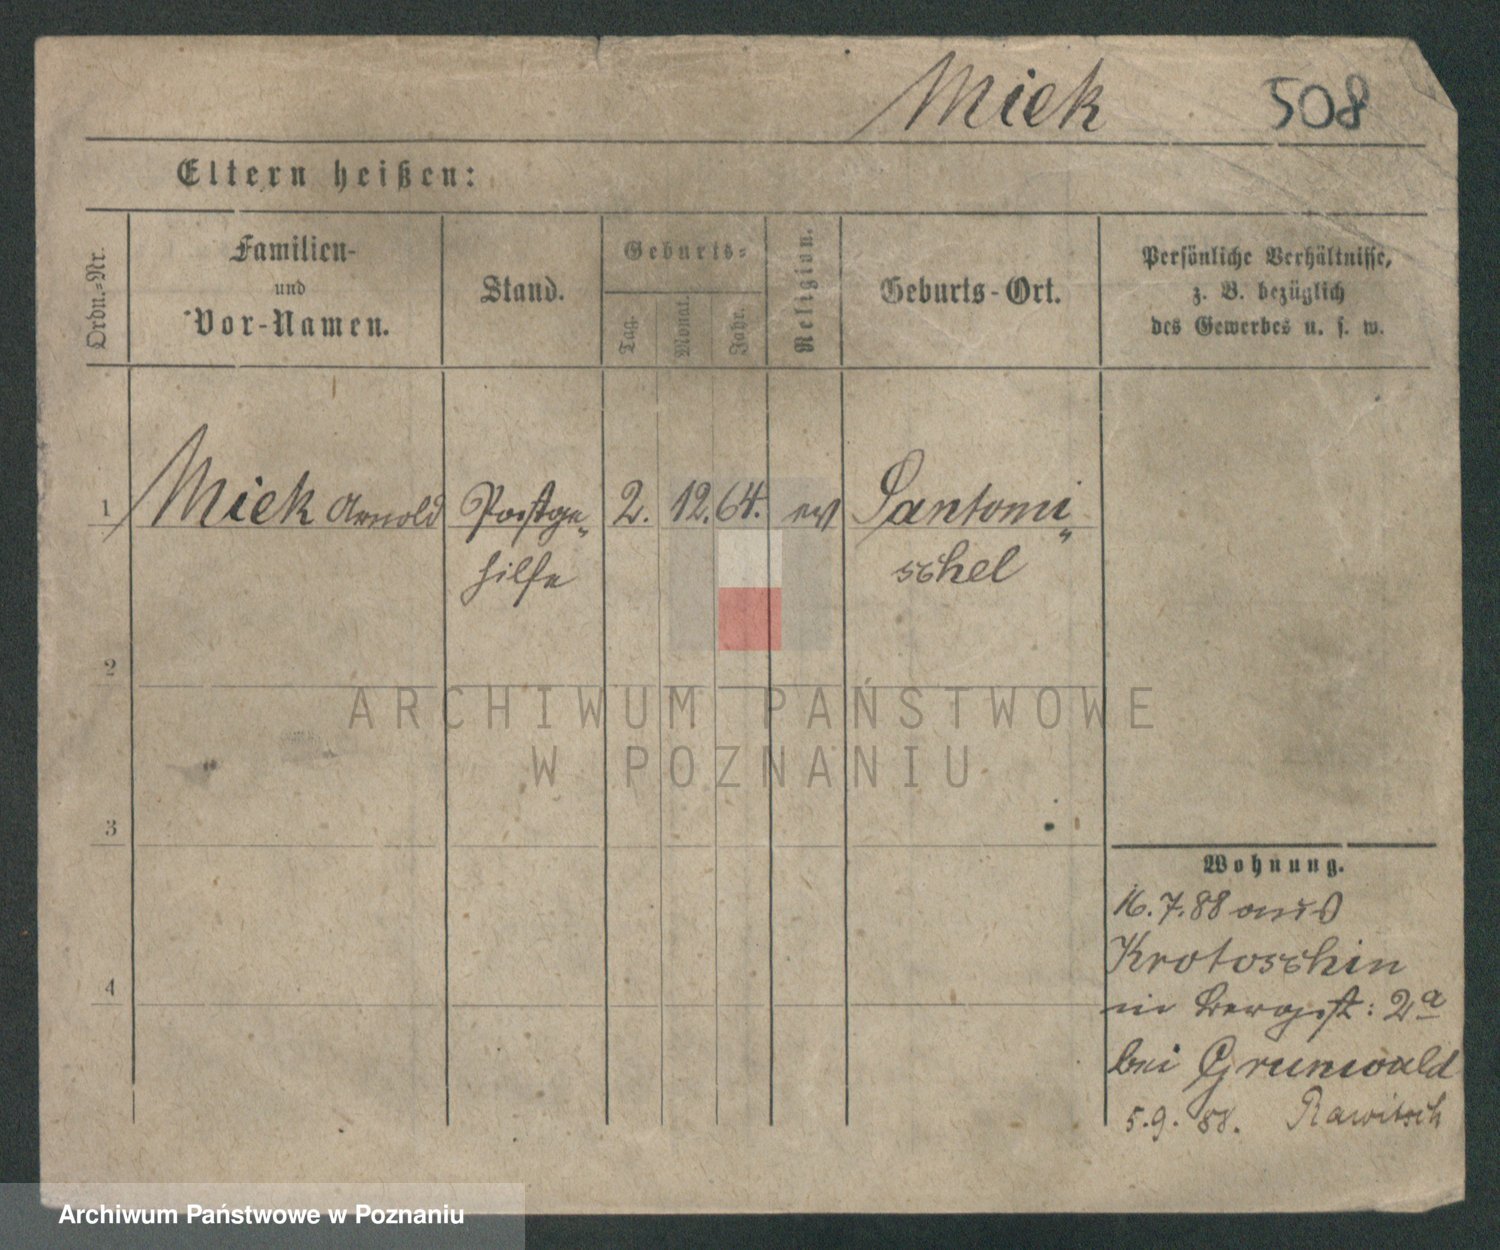 Miek 508
Eltern heißen:
Ordn.-Nr.
Familien-
und
Vor-Namen.
Stand.
Geburts-
Tag.
Monat.
Jahr.
Religion.
Geburts-Ort.
Persönliche Verhältnisse,
z. B. bezüglich
des Gewerbes u. s. w.
1 Miek Arnold Postge- 2. 12. 64. ev Santomi-
hilfe schel
2
3
4
Wohnung.
16.7.88 aus
Krotoschin
in Bergst: 2a
bei Grunwald
5.9.88. Rawitsch
ARCHIWUM PAŃSTWOWE
W POZNANIU
Archiwum Państwowe w Poznaniu